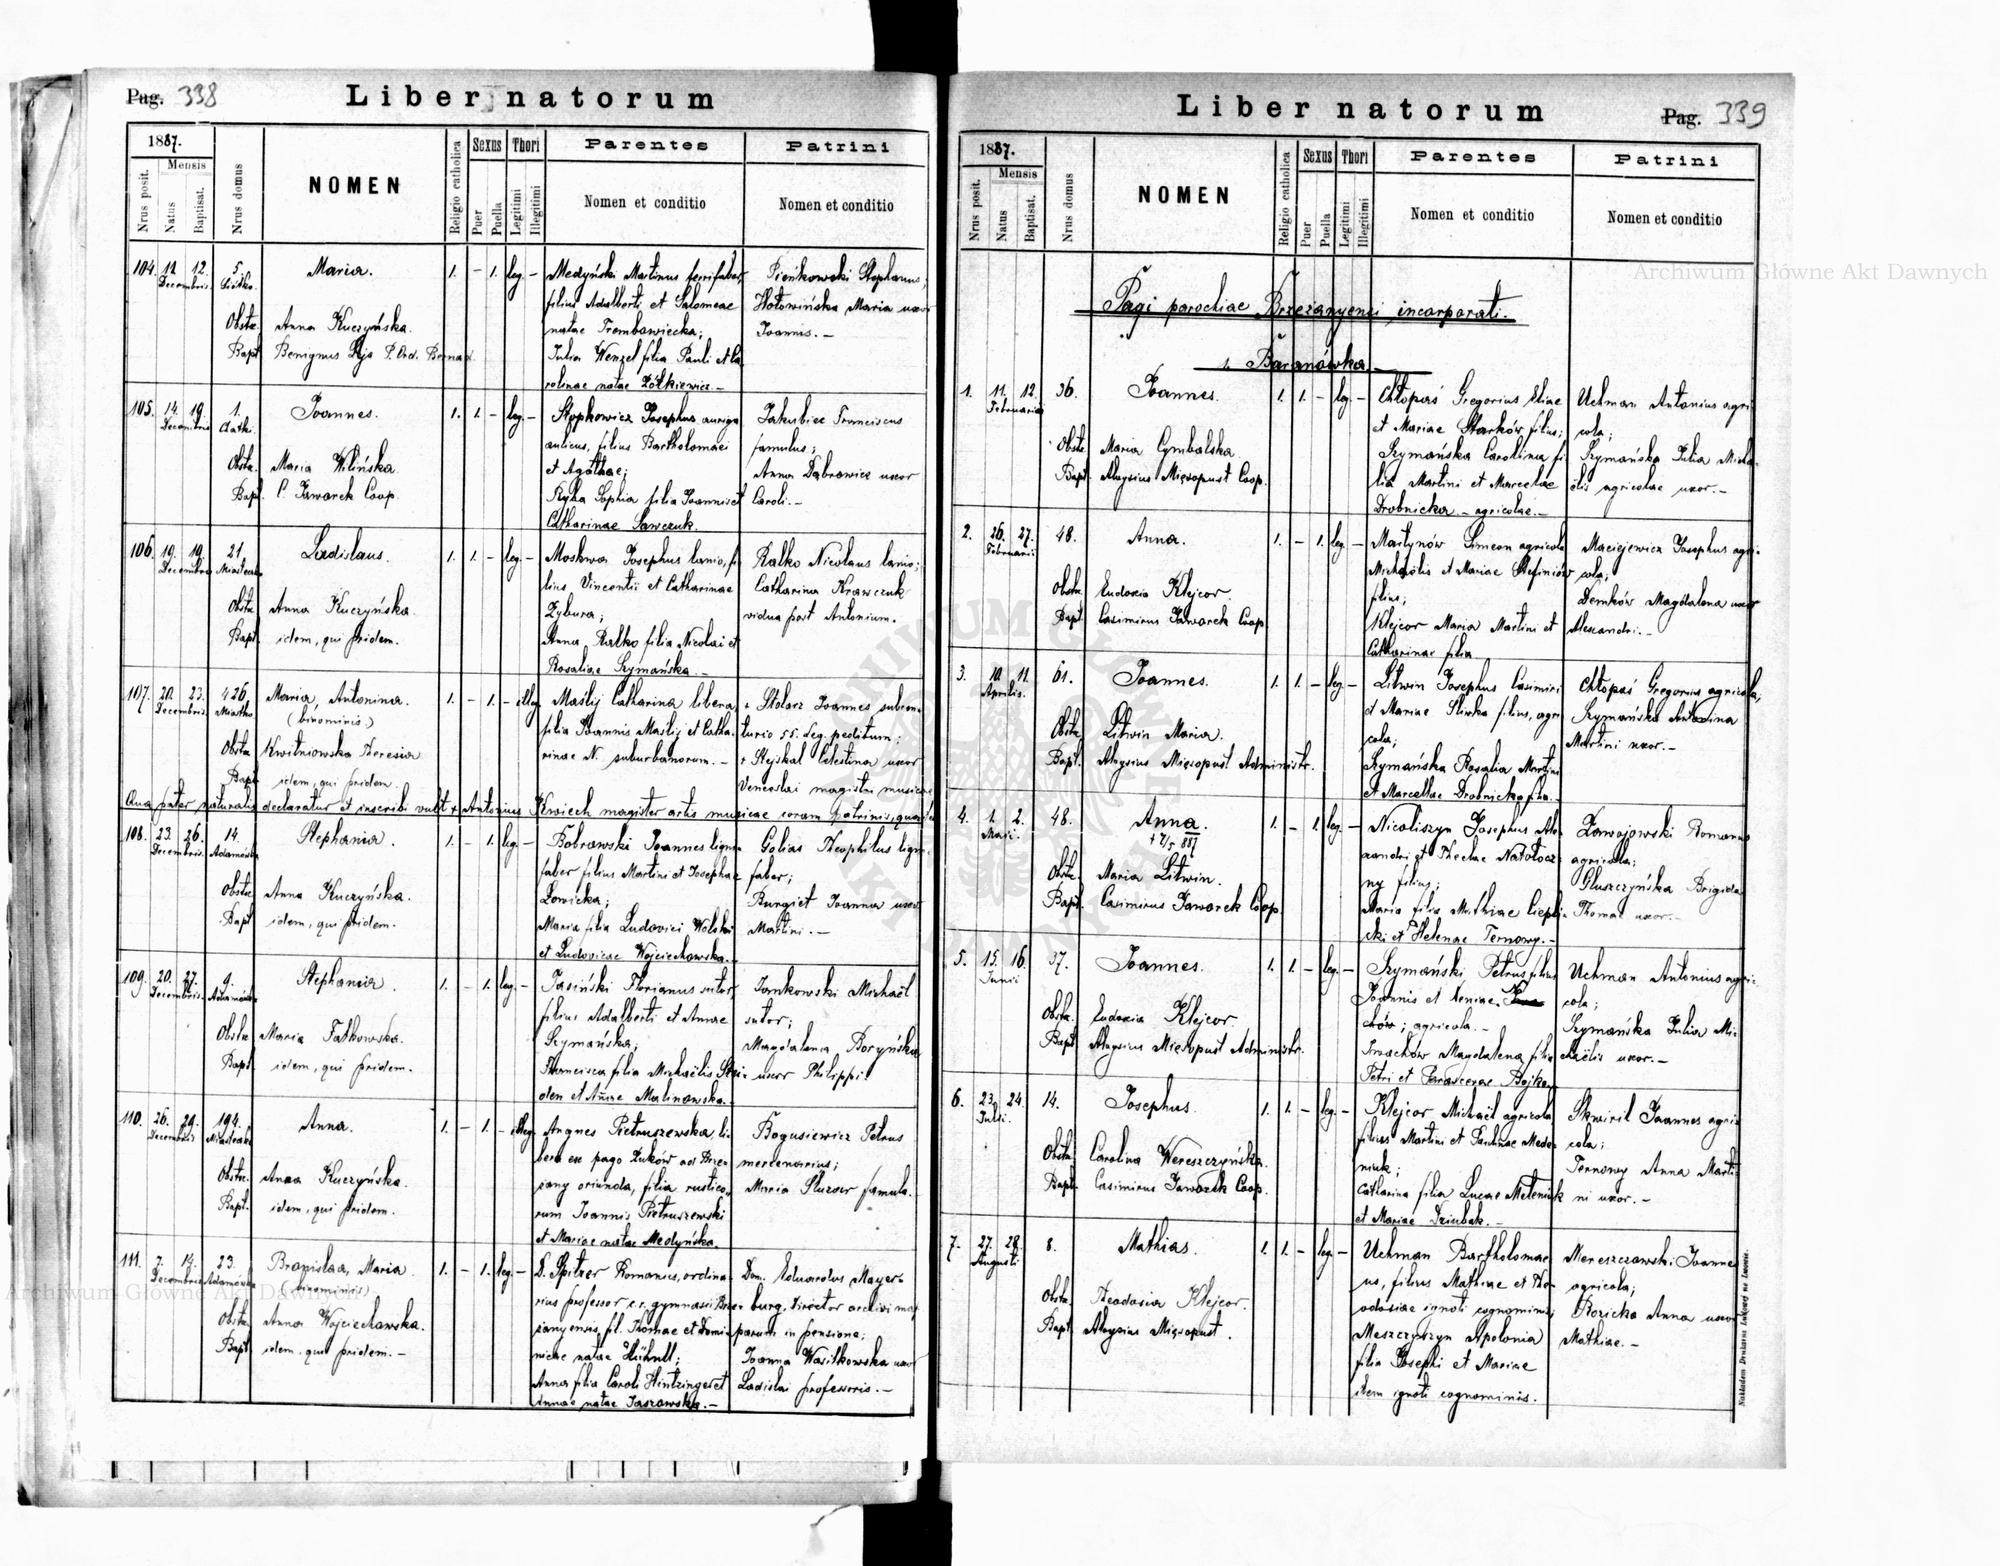 Pag. 338
Liber natorum
1887.
Mensis
Nrus posit.
Natus
Baptisat.
Nrus domus
NOMEN
Religio catholica
Sexus
Puer
Puella
Thori
Legitimi
Illegitimi
Parentes
Nomen et conditio
Patrini
Nomen et conditio
104. 11. 12. 5. Maria. 1. – 1. leg. – Medyński Martinus ferrifaber, Pieńkowski Stephanus;
Decembris filius Adalberti et Salomeae Hołowińska Maria uxor
natae Trembawiecka; Joannis. –
Obste. Anna Kuczyńska.
Bapt. Benignus P. Ord. Bernad.
Julia Wenzel filia Pauli et Ca
rolinae natae Żółkiewicz –
105. 14. 19. 1. Joannes. 1. 1. – leg. – Stopkowicz Josephus auriga Jakubiec Franciscus
Decembris aulicus, filius Bartholomaei famulus;
Obste. Maria Wilińska et Agathae; Anna Dąbrowicz uxor
Bapt. C. Jaworek Coop. Ryka Sophia filia Joannis et Caroli. –
Catharinae Sawczuk.
106. 19. 19. 21. Ladislaus. 1. 1. – leg. – Moskwa Josephus lanio, fi Ralko Nicolaus lanio;
Decembris lius Vincentii et Catharinae Catharina Krawczuk
Obste. Anna Kuczyńska. Zybura; vidua post Antonium.
Bapt. idem, qui pridem. Anna Ralko filia Nicolai et
Rosaliae Szymańska. –
107. 20. 23. 426. Maria, Antonina. 1. – 1. – illeg. Maślij Catharina libera, + Stolarz Joannes subcen=
Decembris. (binominis.) filia Joannis Maślij et Catha= turio 55. Leg. peditum;
Obste. Kwitniowska Theresia rinae N. suburbanorum. – + Stejskal Celestina uxor
Bapt. idem, qui pridem. Venceslai magistri musicae
Qua pater naturalis declaratur et inscribi vult + Antonius Kwiech magister artis musicae coram patrinis,
108. 23. 26. 14. Stephania. 1. – 1. leg. – Bobrowski Joannes ligni= Golias Theophilus ligni=
Decembris. Adamówka faber filius Martini et Josephae faber;
Obste. Anna Kuczyńska. Łowicka; Bungiet Joanna uxor
Bapt. idem, qui pridem. Maria filia Ludovici Wolski Martini. –
et Ludovicae Wojciechowska. –
109. 20. 27. 9. Stephania. 1. – 1. leg. – Jasiński Florianus sutor, Jankowski Michaël
Decembris. Adamówka filius Adalberti et Annae sutor;
Obste. Maria Fałkowska. Szymańska; Magdalena Boryńska
Bapt. idem, qui pridem. Francisca filia Michaëlis uxor Philippi.
et Annae Malinowska.
110. 26. 29. 194. Anna. 1. – 1. – illeg. Angnes Pietruszewska, li= Bogusiewicz Petrus
Decembris bera ex pago Żuków ad Brze= mercenarius;
Obste. Anna Kuczyńska. żany oriunda, filia rustico= Maria famula.
Bapt. idem, qui pridem. rum Joannis Pietruszewski
et Mariae natae Medyńska.
111. 7. 14. 23. Bronislaa, Maria 1. – 1. leg. – D. Spitzer Romanus, ordina= Dom. Eduardus Mayer=
Decembris Adamówka (binominis) rius professor c. r. gymnasii Brze= burg, Director archivi map
Obste. Anna Wojciechowska. żanyensis, fil. Thomae et Domi= parum in pensione;
Bapt. idem, qui pridem. – nicae natae Joanna Wasilkowska uxor
Anna filia Caroli Hintzinger et Ladislai professoris. –
Annae natae Jaszowska. –
Liber natorum
Pag. 339
1887.
Mensis
Nrus posit.
Natus
Baptisat.
Nrus domus
NOMEN
Religio catholica
Sexus
Puer
Puella
Thori
Legitimi
Illegitimi
Parentes
Nomen et conditio
Patrini
Nomen et conditio
Pagi parochiae Brzeżanyensi incorporati.
1. Baranówka. –
1. 11. 12. 36. Joannes. 1. 1. – leg. – Chłopaś Gregorius Eliae Uchman Antonius agri
Februarii et Mariae Starków filius; cola;
Obste. Maria Cymbalska. Szymańska Carolina fi Szymańska Julia Micha=
Bapt. Aloysius Mięsopust Coop. lia Martini et Marcelae ëlis agricolae uxor. –
Drobnicka. – agricolae. –
2. 26. 27. 48. Anna. 1. – 1. leg. – Martynów Simeon agricola Maciejewicz Josephus agri=
Februarii Michaëlis et Mariae Stefiniów cola;
Obste. Eudoxia Klejcor. filius; Demków Magdalena uxor
Bapt. Casimirus Jaworek Coop. Klejcor Maria Martini et Alexandri. –
Catharinae filia
3. 10. 11. 61. Joannes. 1. 1. – leg. – Litwin Josephus Casimiri Chłopaś Gregorius agricola,
Aprilis. et Mariae Śliwka filius, agri Szymańska Antonina
Obste. Litwin Maria. cola; Martini uxor. –
Bapt. Aloysius Mięsopust Administr. Szymańska Rosalia Martini
et Marcellae Drobnicka filia. –
4. 1. 2. 48. Anna. 1. – 1. leg. – Nicoliszyn Josephus Ale= Zawojowski Romanus
Maji. + 7/5 887 xandri et Theclae Natołocz= agricola;
Obste. Maria Litwin. ny filius; Głuszczyńska Brigida
Bapt. Casimirus Jaworek Coop. Maria filia Mathiae Ciepli= Thomae uxor. –
cki et Helenae Ternowy. –
5. 15. 16. 37. Joannes. 1. 1. – leg. – Szymański Petrus filius Uchman Antonius agri=
Junii Joannis et Xeniae cola;
chów; agricola. – Szymańska Julia Mi=
Obste. Eudoxia Klejcor. Iwachów Magdalena filia chaëlis uxor. –
Bapt. Aloysius Mięsopust Administr. Petri et Parascevae Bojko.
6. 23. 24. 14. Josephus. 1. 1. – leg. – Klejcor Michaël agricola Skwiril Joannes agri=
Julii. filius Martini et Paulinae Mede= cola;
Obste. Carolina Wereszczyńska. niuk; Ternowy Anna Marti=
Bapt. Casimirus Jaworek Coop. Catharina filia Lucae Meteniuk ni uxor. –
et Mariae Dziubak. –
7. 27. 28. 8. Mathias. 1. 1. – leg. – Uchman Bartholomae= Mereszczowski Joannes
Augusti us, filius Mathiae et The= agricola;
Obste. Theodosia Klejcor. odosiae ignoti cognominis; Rozicka Anna uxor
Bapt. Aloysius Mięsopust. Meszczyszyn Apolonia Mathiae. –
filia Josephi et Mariae
item ignoti cognominis.
Nakładem Drukarni Ludowej we Lwowie.
Archiwum Główne Akt Dawnych
Archiwum Główne Akt Dawnych
ARCHIWUM GŁÓWNE AKT DAWNYCH